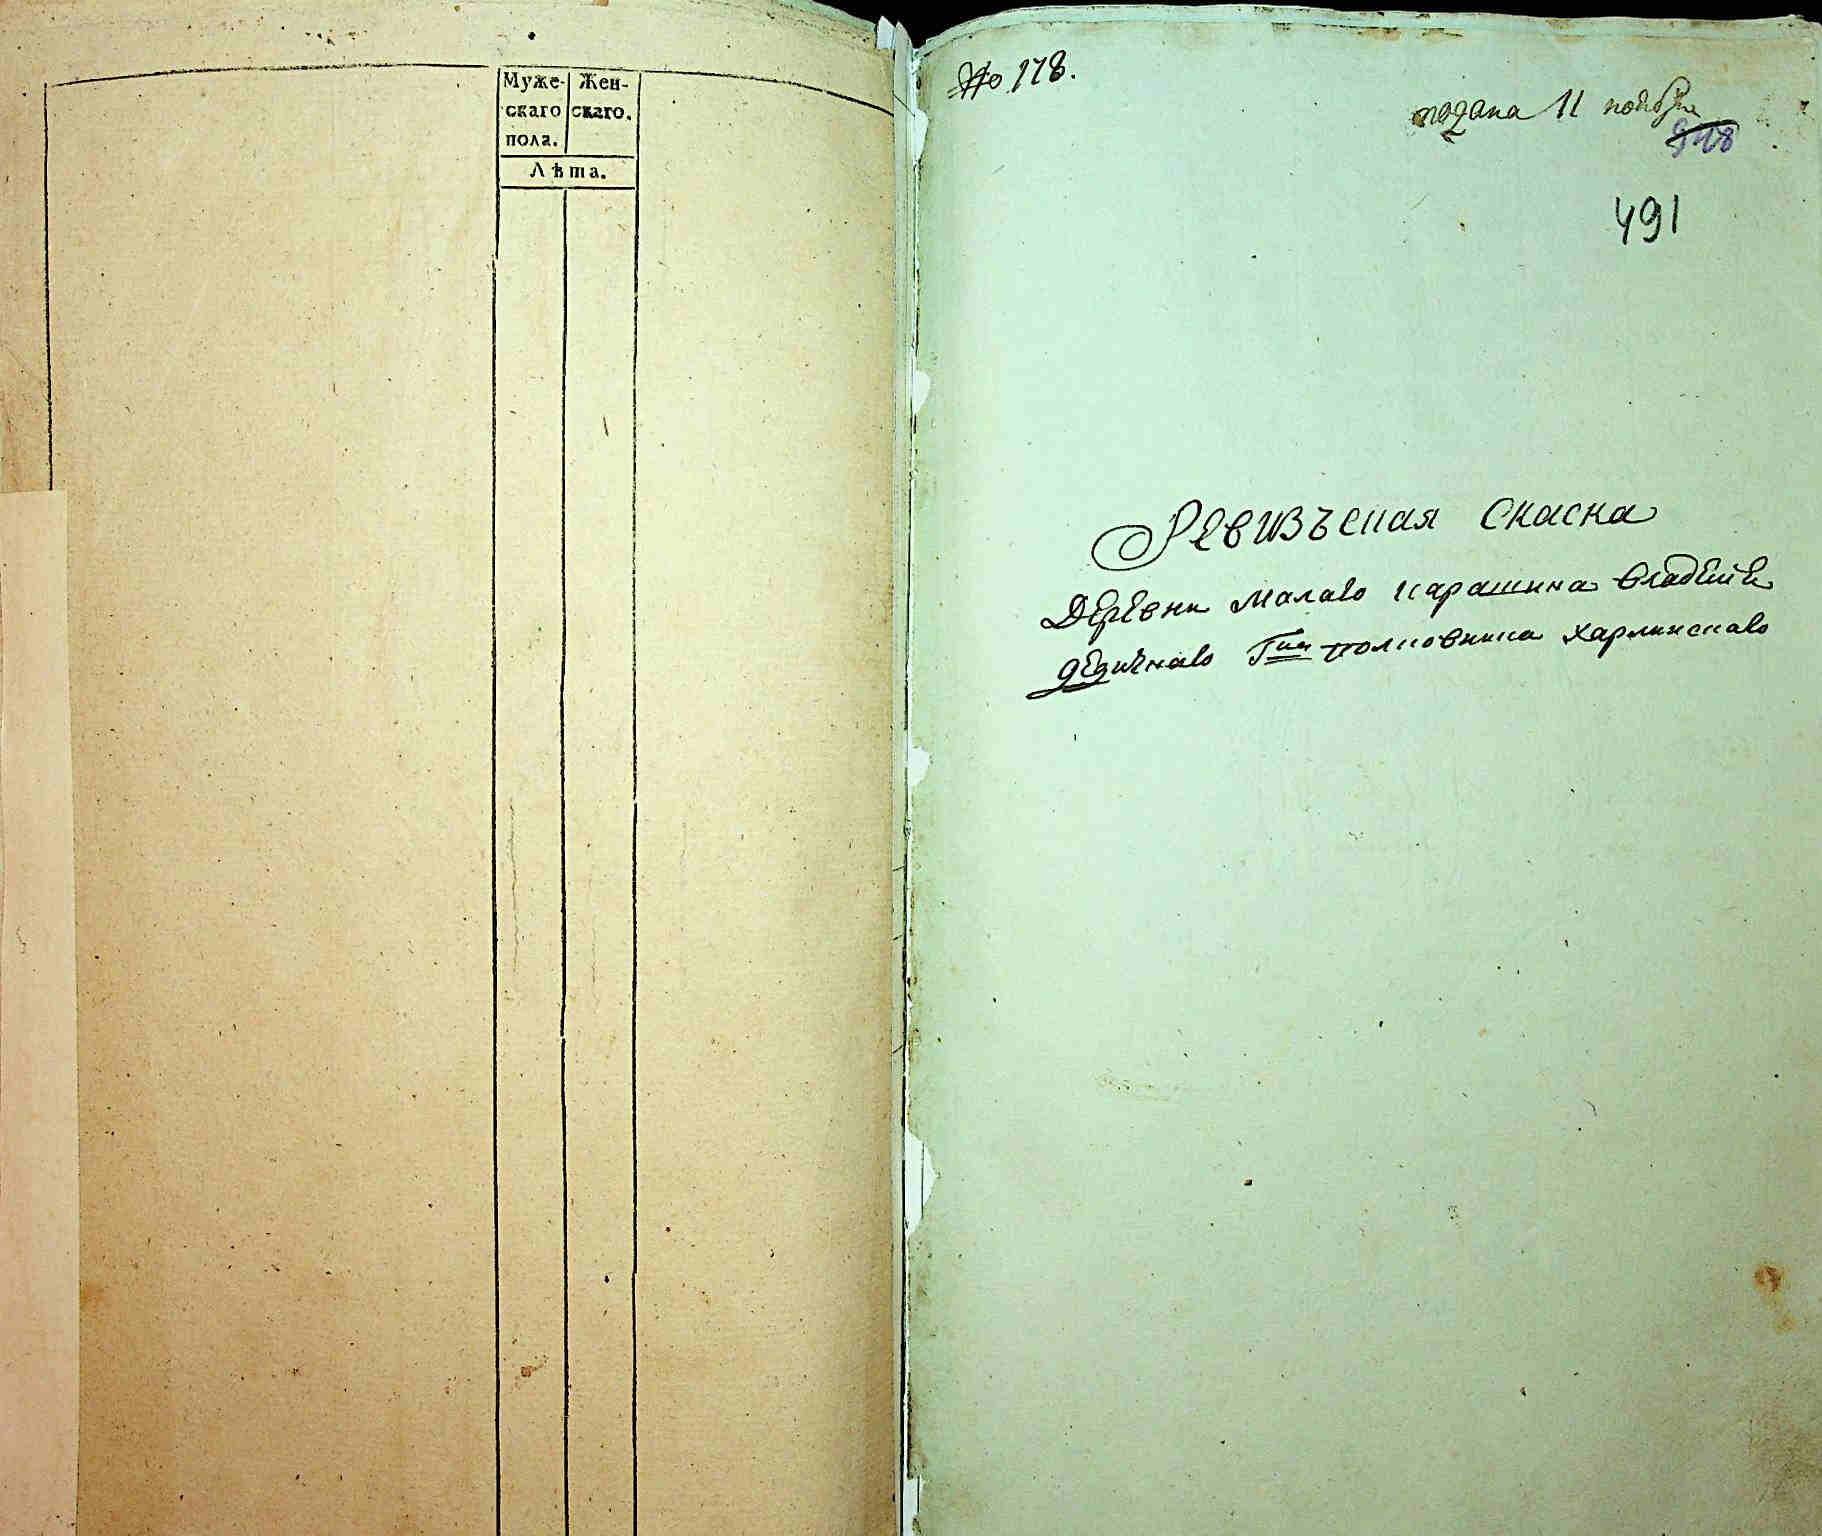 Муже- Жен-
скаго скаго.
пола.
Лѣта.
№ 178.
подана 11 ноября
948
491
Ревизъская скаска
Деревни Малаго Карашина владения
дедичнаго Гна полковника Харлинскаго